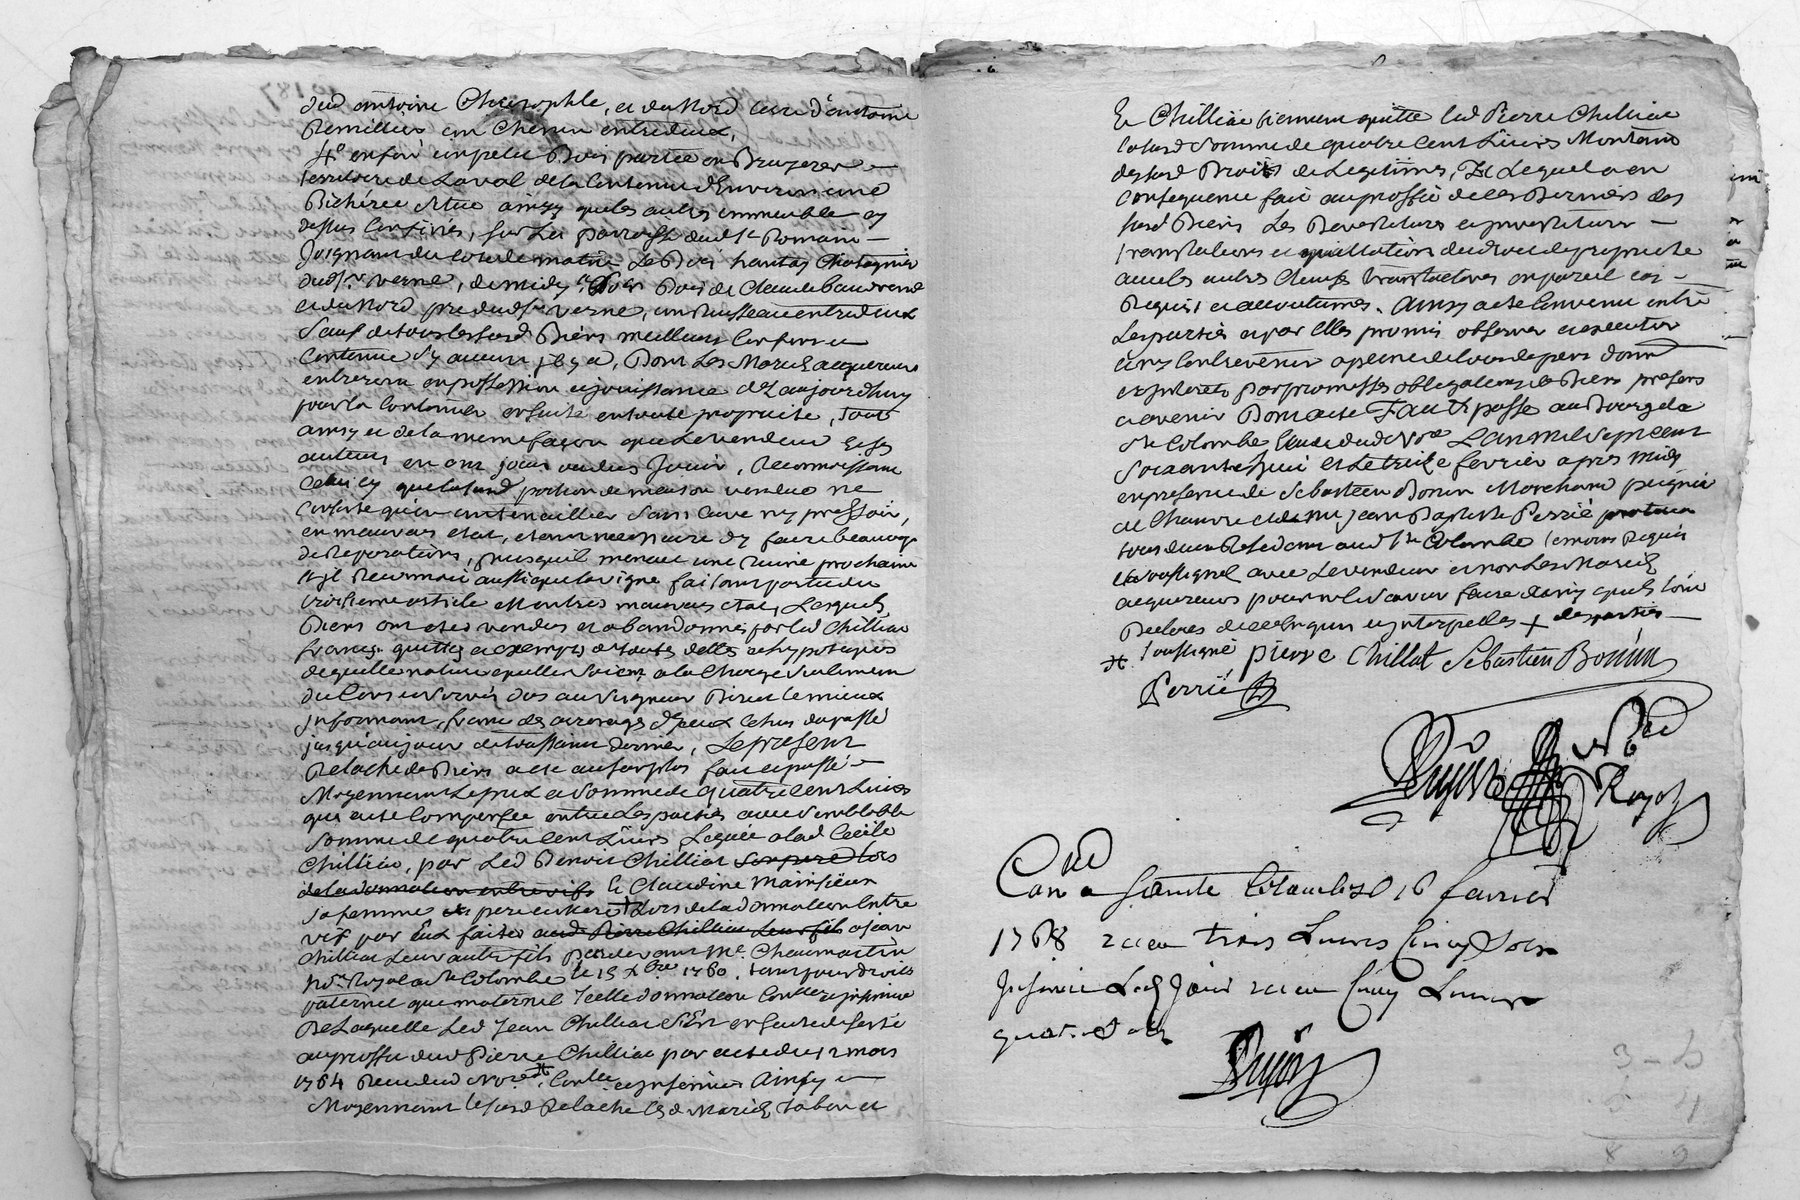 dud antoine Christophle, et du Nord terre d'antoine
Remillier un Chemin entredeux,
4° enfin un petit Bois partie en Bruyeres
territoire de Laval de la Contenue d'Environ une
Bicherée située ainsy que les autres immeubles cy
dessus Confinés, sur la parroisse dud St Romain
Joignant du coté de matin Le Bois hautas Chatagnier
dud sr verne, de midy et soir Bois de Claude
et du Nord pré dud sr verne, un Ruisseau entredeux
Sauf de tous lesd Biens meilleurs Confins et
Contenue s'y aucun jl y a, Dont Les Mariés acquereurs
entreront en possession et jouissance dez aujourdhuy
pour la Continuer ensuite en toute proprieté, Tout
ainsy et de la meme façon que Le vendeur Et ses
auteurs en ont joui ou dus Jouir, Reconnoissant
Celui cy que lasusd portion de maison vendue ne
Consiste qu'en un tenaillier sans Cave ny pressoir,
en mauvais etat, etant necessaire d'y faire beaucoup
de Reparations, puisquil menace une Ruine prochaine
aussi que la vigne faisant partie du
troisieme article est en tres mauvais etat, Lesquels
Biens ont eté vendus et abandonnés par led Chilliat
francs quittes et exempts de toutes dettes et hypoteques
de quelle nature quelles soient a la Charge seulement
du Cens et servis dus au seigneur Direct le mieux
jnformant, franc des arrerages d'yceux Cens du passé
jusqu'au jour de toussaint dernier, Le present
Relache de Biens a eté au surplus fait et passé
Moyennant Le prix et somme de quatre Cent Livres
qui a eté Compensée entre Les parties avec semblable
somme de quatre Cent Livres Leguée a lad Cecile
Chilliat, par Led Benoit Chilliat son pere Lors
de la donnation entrevifs Et Claudine
sa femme ses pere et mere + Lors de la donnation Entre
vif par Eux faites aud Pierre Chilliat Leur fils a jean
Chilliat Leur autre fils Pardevant Me Chaumartin
Nore Royal a Ste Colombe le 15 xbre 1760. tant pour droits
paternel que maternel Icelle donnation Contlée et jnsinuée
De Laquelle Led Jean Chilliat s'Est ensuite desisté
au proffit dud Pierre Chilliat par acte du 12 mars
1764 Recu dud Nore Contlé et jnsinué Ainsy et
Moyennant Le susd Relache Les d Mariés Tabou et
Et Chilliat tiennent quitte led Pierre Chilliat
lasusd somme de quatre Cent Livres Montant
desusd Droits de Legitimes, Lequel a en
Consequence fait au proffit de ces Derniers des
susd Biens Les Devestitures et jnvestitures
translations et quittation du droit de proprieté
avec les autres Clauses translatives en pareil cas
Requis et accoutumés. Ainsy a eté Convenu entre
Les parties et par elles promis observer et executer
et ny Contrevenir a peine de tous depens dom
et jnterets par promesses obligations de Biens presens
et avenir Dont acte Fait et passé au Bourg de
Ste Colombe Etude dud Nore L'an mil sept cent
soixante huit et Le treize fevrier apres Midy
en presence de Sebastien Bonin Marchand peigneur
de Chanvre et de sr jean Baptiste Perrié praticien
tous deux Residant aud Ste Colombe temoins Requis
et soussignés avec Le vendeur et non Les Mariés
acquereurs pour ne le scavoir faire ainsy quils l'ont
Declaré de ce enquis et jnterpellés + des parties
soussigné pierre Chillat Sebastien Bonin
Perrié
Dujast
Royal
Con a sainte Colombe le 16 fevrier
1768 recu trois Livres Cinq sols
Jnsinué Led Jour recu Cinq Livres
quatre sols
Dujast